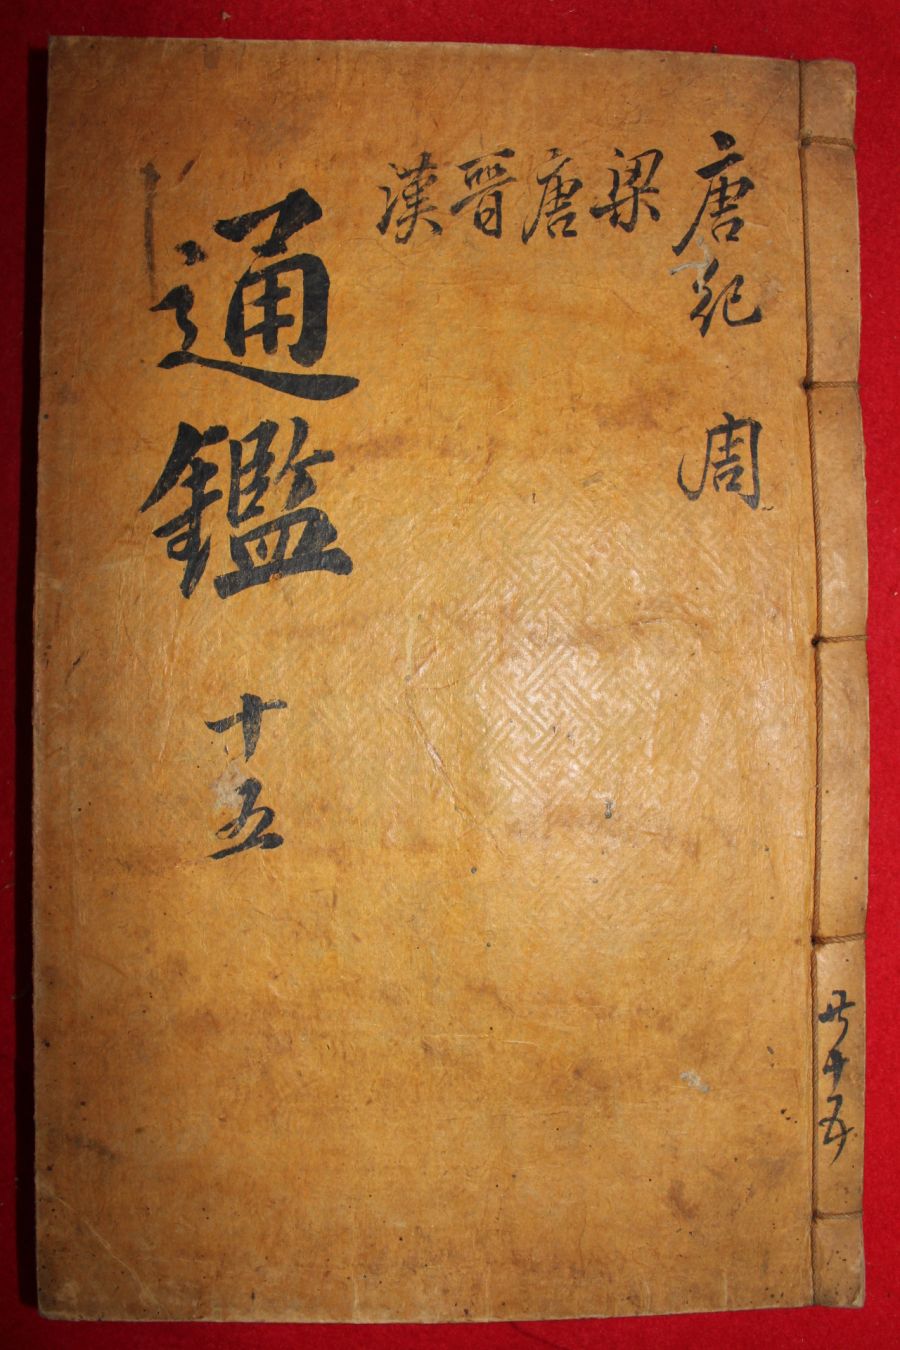 唐紀
梁
唐
晉
漢
周
通鑑 十五
共十五